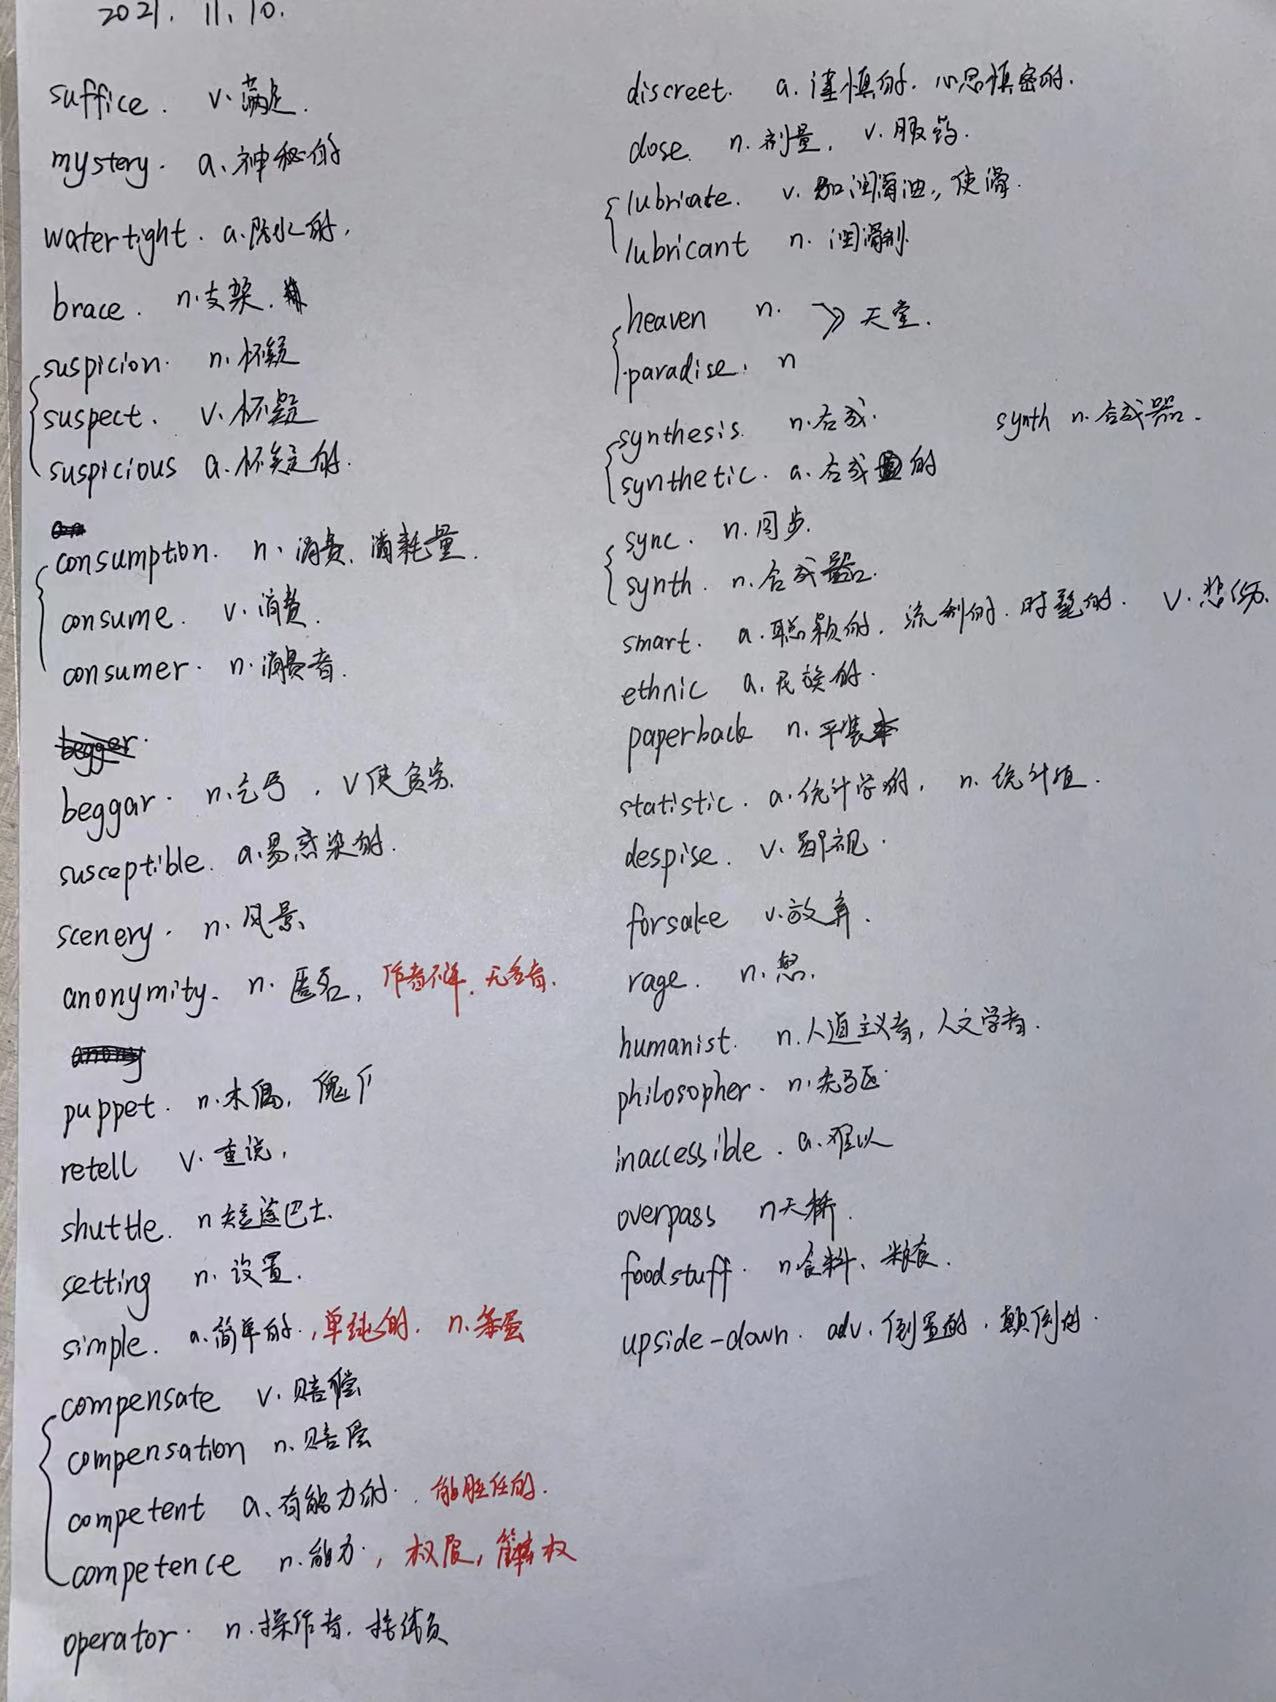 2021. 11. 10.
suffice. v. 满足.
mystery. a. 神秘的
watertight. a. 防水的.
brace. n. 支架.
suspicion. n. 怀疑
suspect. v. 怀疑
suspicious a. 怀疑的.
consumption. n. 消费. 消耗量.
consume. v. 消费.
consumer. n. 消费者.
begger.
beggar. n. 乞丐, v 使贫穷.
susceptible. a. 易感染的.
scenery. n. 风景.
anonymity. n. 匿名, 作者不详. 无名者.
puppet. n. 木偶, 傀
retell v. 重说,
shuttle. n 短途巴士.
setting n. 设置.
simple. a. 简单的., 单纯的. n. 笨蛋
compensate v. 赔偿
compensation n. 赔偿
competent a. 有能力的. . 能胜任的.
competence n. 能力., 权限,
operator. n. 操作者. 接线员
discreet. a. 谨慎的. 心思慎密的.
dose. n. 剂量, v. 服药.
lubricate. v. 加润滑油, 使滑.
lubricant n. 润滑剂.
heaven n. 天堂.
paradise. n
synthesis. n. 合成. synth n. 合成器.
synthetic. a. 合成的
sync. n. 同步.
synth. n. 合成器.
smart. a. 聪颖的. 流利的. 时髦的. v. 悲伤.
ethnic a. 民族的.
paperback n. 平装本
statistic. a. 统计学的, n. 统计值.
despise. v. 鄙视.
forsake v. 放弃.
rage. n. 怒.
humanist. n. 人道主义者, 人文学者.
philosopher. n.
inaccessible. a. 难以
overpass n 天桥.
foodstuff. n. 食料、粮食.
upside-down. adv. 倒置的. 颠倒的.